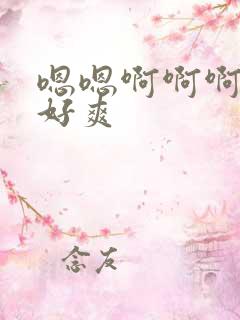 嗯嗯啊啊啊
好爽
念友